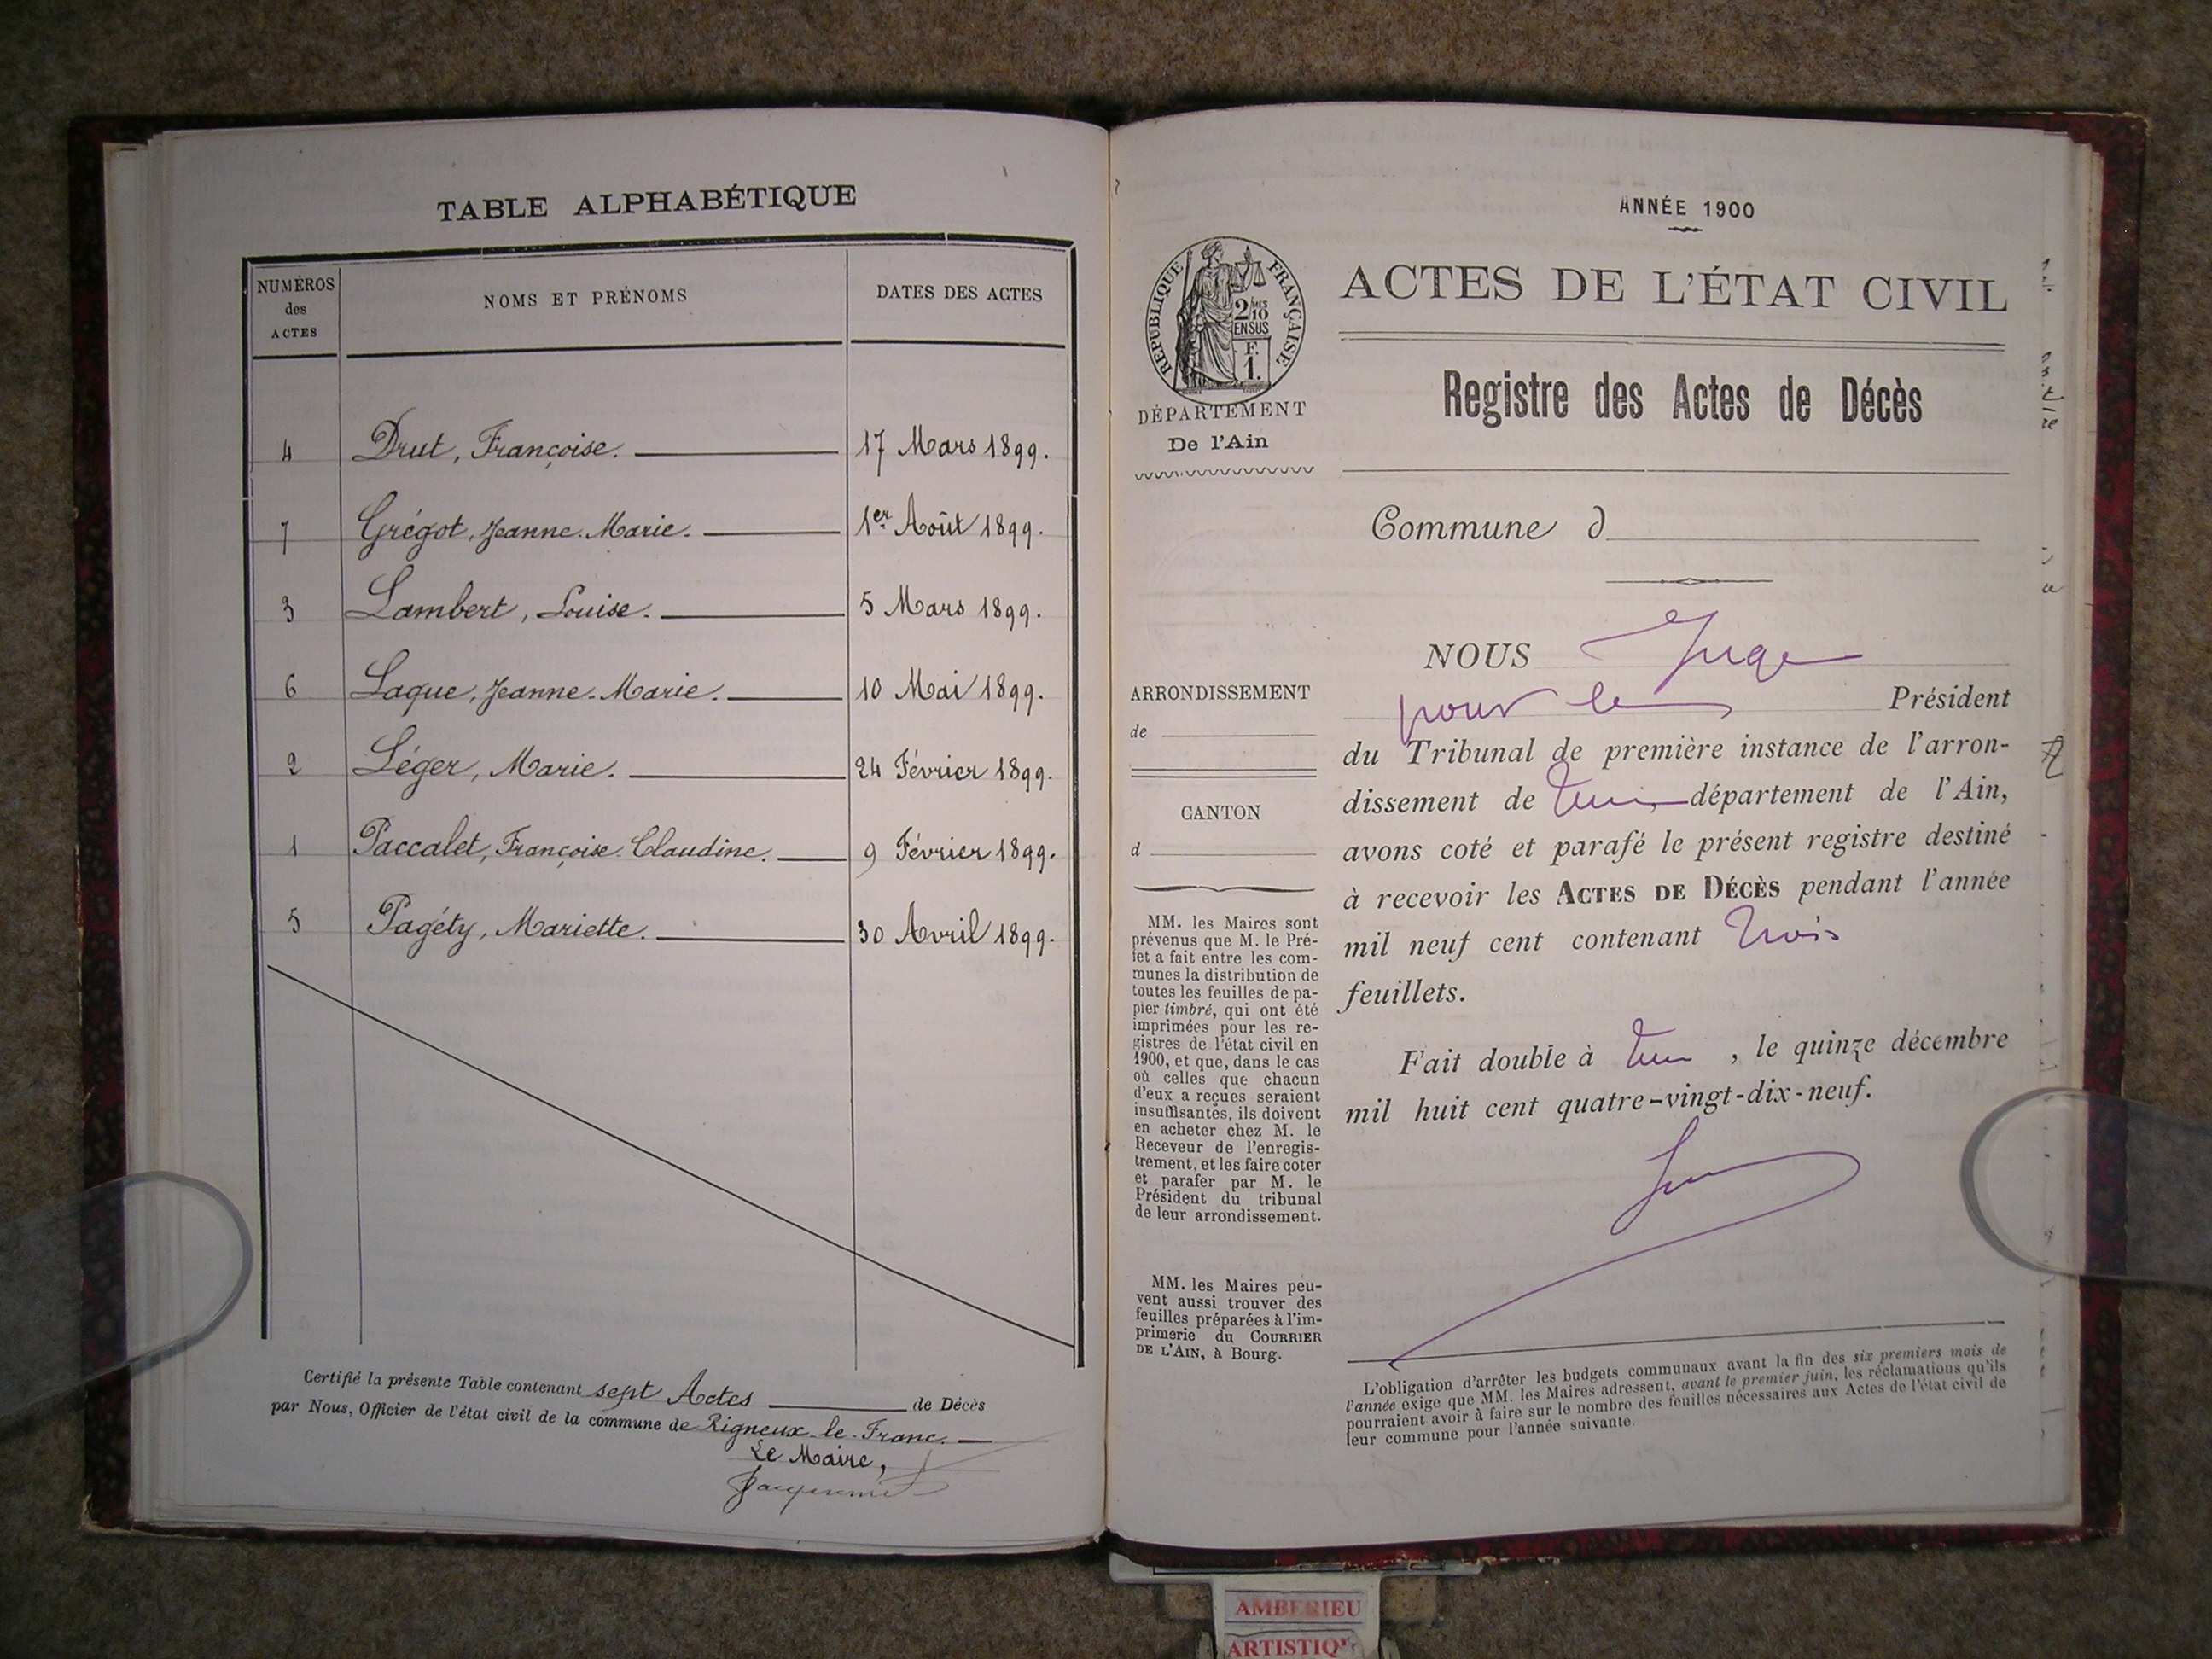 TABLE ALPHABÉTIQUE
NUMÉROS
des
ACTES
NOMS ET PRÉNOMS
DATES DES ACTES
4 Drut, Françoise. 17 Mars 1899.
7 Grégot, Jeanne-Marie. 1er Août 1899.
3 Lambert, Louise. 5 Mars 1899.
6 Laque, Jeanne-Marie. 10 Mai 1899.
2 Léger, Marie. 24 Février 1899.
1 Paccalet, Françoise Claudine. 9 Février 1899.
5 Pagéty, Mariette. 30 Avril 1899.
Certifié la présente Table contenant sept Actes de Décès
par Nous, Officier de l'état civil de la commune de Rigneux-le-Franc.
Le Maire,
ANNÉE 1900
RÉPUBLIQUE FRANÇAISE
2/10 MES
EN SUS
F.
1.
DÉPARTEMENT
De l'Ain
ACTES DE L'ÉTAT CIVIL
Registre des Actes de Décès
Commune d
ARRONDISSEMENT
de
CANTON
d
MM. les Maires sont
prévenus que M. le Pré-
fet a fait entre les com-
munes la distribution de
toutes les feuilles de pa-
pier timbré, qui ont été
imprimées pour les re-
gistres de l'état civil en
1900, et que, dans le cas
où celles que chacun
d'eux a reçues seraient
insuffisantes, ils doivent
en acheter chez M. le
Receveur de l'enregis-
trement, et les faire coter
et parafer par M. le
Président du tribunal
de leur arrondissement.
MM. les Maires peu-
vent aussi trouver des
feuilles préparées à l'im-
primerie du COURRIER
DE L'AIN, à Bourg.
NOUS Juge
pour le Président
du Tribunal de première instance de l'arron-
dissement de département de l'Ain,
avons coté et parafé le présent registre destiné
à recevoir les ACTES DE DÉCÈS pendant l'année
mil neuf cent contenant trois
feuillets.
Fait double à , le quinze décembre
mil huit cent quatre-vingt-dix-neuf.
L'obligation d'arrêter les budgets communaux avant la fin des six premiers mois de
l'année exige que MM. les Maires adressent, avant le premier juin, les réclamations qu'ils
pourraient avoir à faire sur le nombre des feuilles nécessaires aux Actes de l'état civil de
leur commune pour l'année suivante.
AMBERIEU
ARTISTIQ